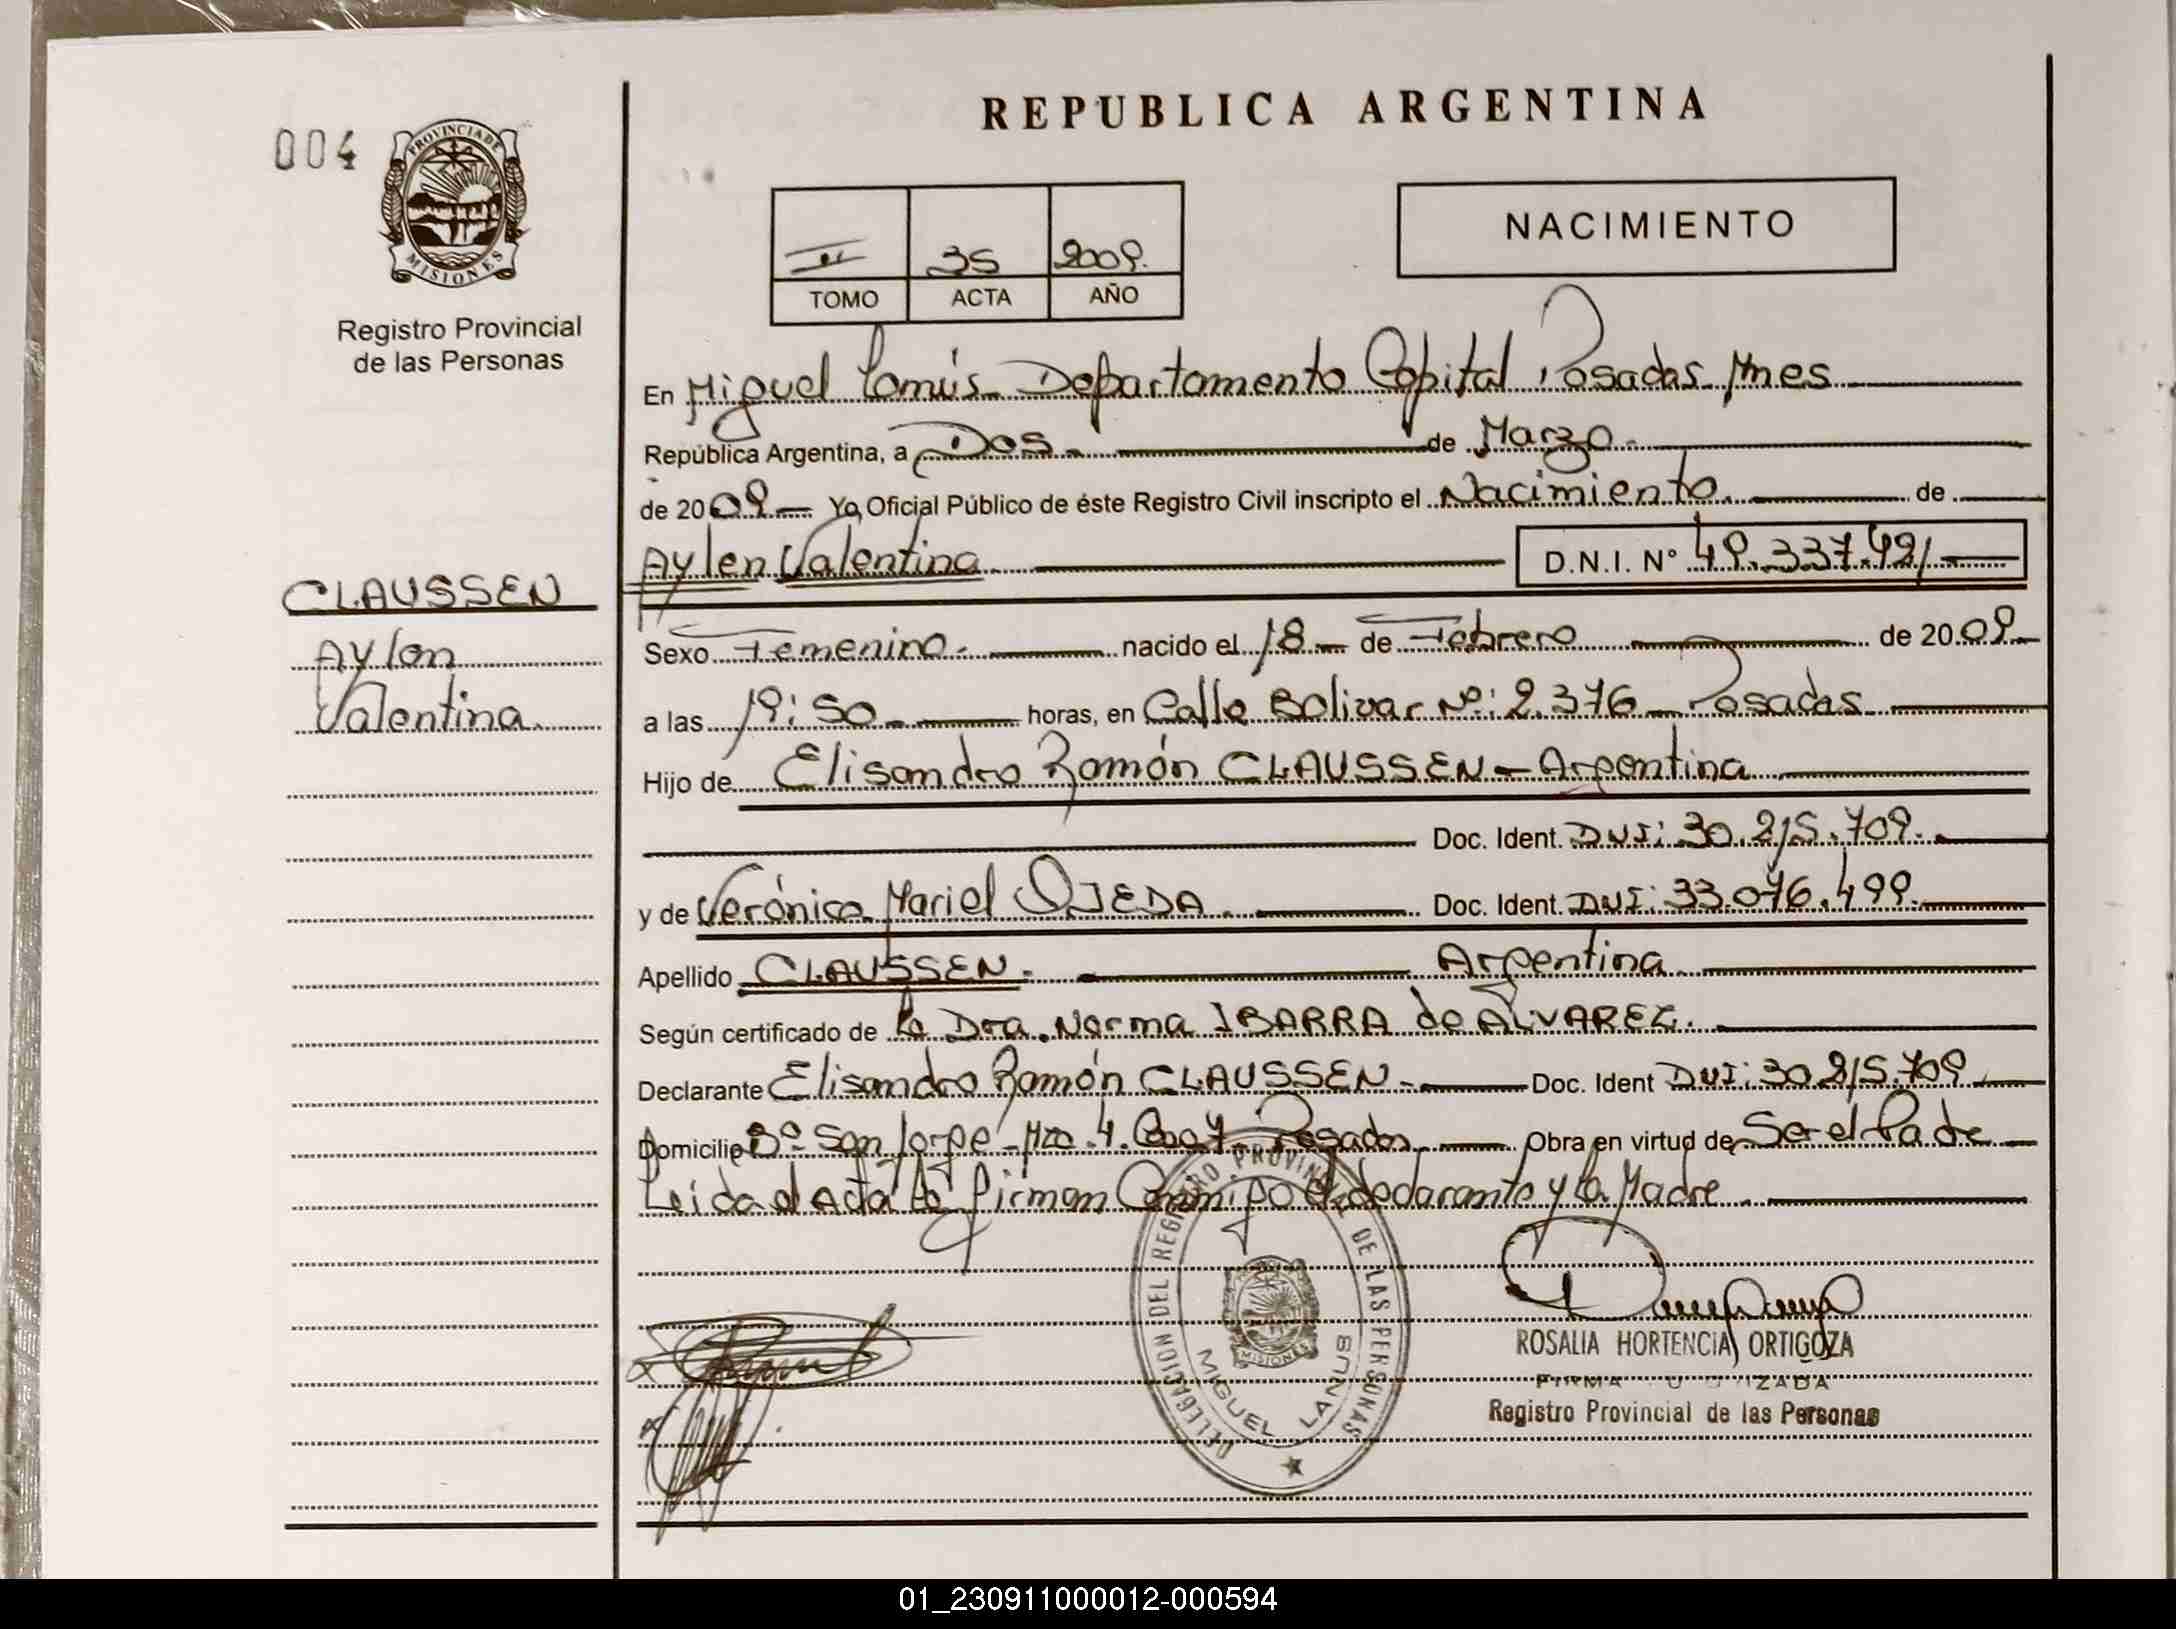 REPUBLICA ARGENTINA
004
PROVINCIA DE
MISIONES
Registro Provincial
de las Personas
II 35 2009.
TOMO ACTA AÑO
NACIMIENTO
En Miguel Lanús Departamento Capital Posadas Mnes
República Argentina, a Dos de Marzo
de 2009 Yo Oficial Público de éste Registro Civil inscripto el Nacimiento de
Aylen Valentina D.N.I. Nº 49.337.421
CLAUSSEN
Aylen
Valentina
Sexo Femenino. nacido el 18 de Febrero de 2009
a las 19:50 horas, en Calle Bolivar Nº: 2.376 Posadas
Hijo de Elisandro Ramón CLAUSSEN - Argentina
Doc. Ident. DNI: 30.215.709.
y de Verónica Mariel OJEDA Doc. Ident. DNI: 33.076.499.
Apellido CLAUSSEN. Argentina
Según certificado de la Dra. Norma IBARRA de ALVAREZ.
Declarante Elisandro Ramón CLAUSSEN Doc. Ident DNI: 30.215.709
Domicilio Bº San Jorge Mza 4. Casa 7 Posadas Obra en virtud de Ser el Padre
Leida el Acta la firman Conmigo el declarante y la Madre
DELEGACION DEL REGISTRO PROVINCIAL DE LAS PERSONAS
MISIONES
MIGUEL LANUS
ROSALIA HORTENCIA ORTIGOZA
Registro Provincial de las Personas
01_230911000012-000594